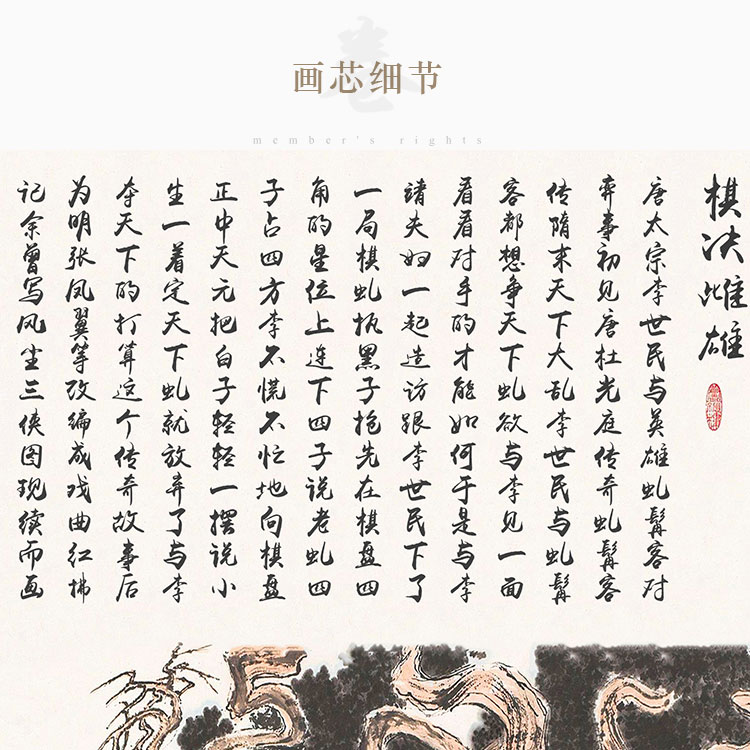 画芯细节
member's rights
棋决雌雄
唐太宗李世民与英雄虬髯客对
弈事初见唐杜光庭传奇虬髯客
传隋末天下大乱李世民与虬髯
客都想争天下虬欲与李见一面
看看对手的才能如何于是与李
靖夫妇一起造访跟李世民下了
一局棋虬执黑子抢先在棋盘四
角的星位上连下四子说老虬四
子占四方李不慌不忙地向棋盘
正中天元把白子轻轻一摆说小
生一着定天下虬就放弃了与李
夺天下的打算这个传奇故事后
为明张凤翼等改编成戏曲红拂
记余曾写风尘三侠图现续而画